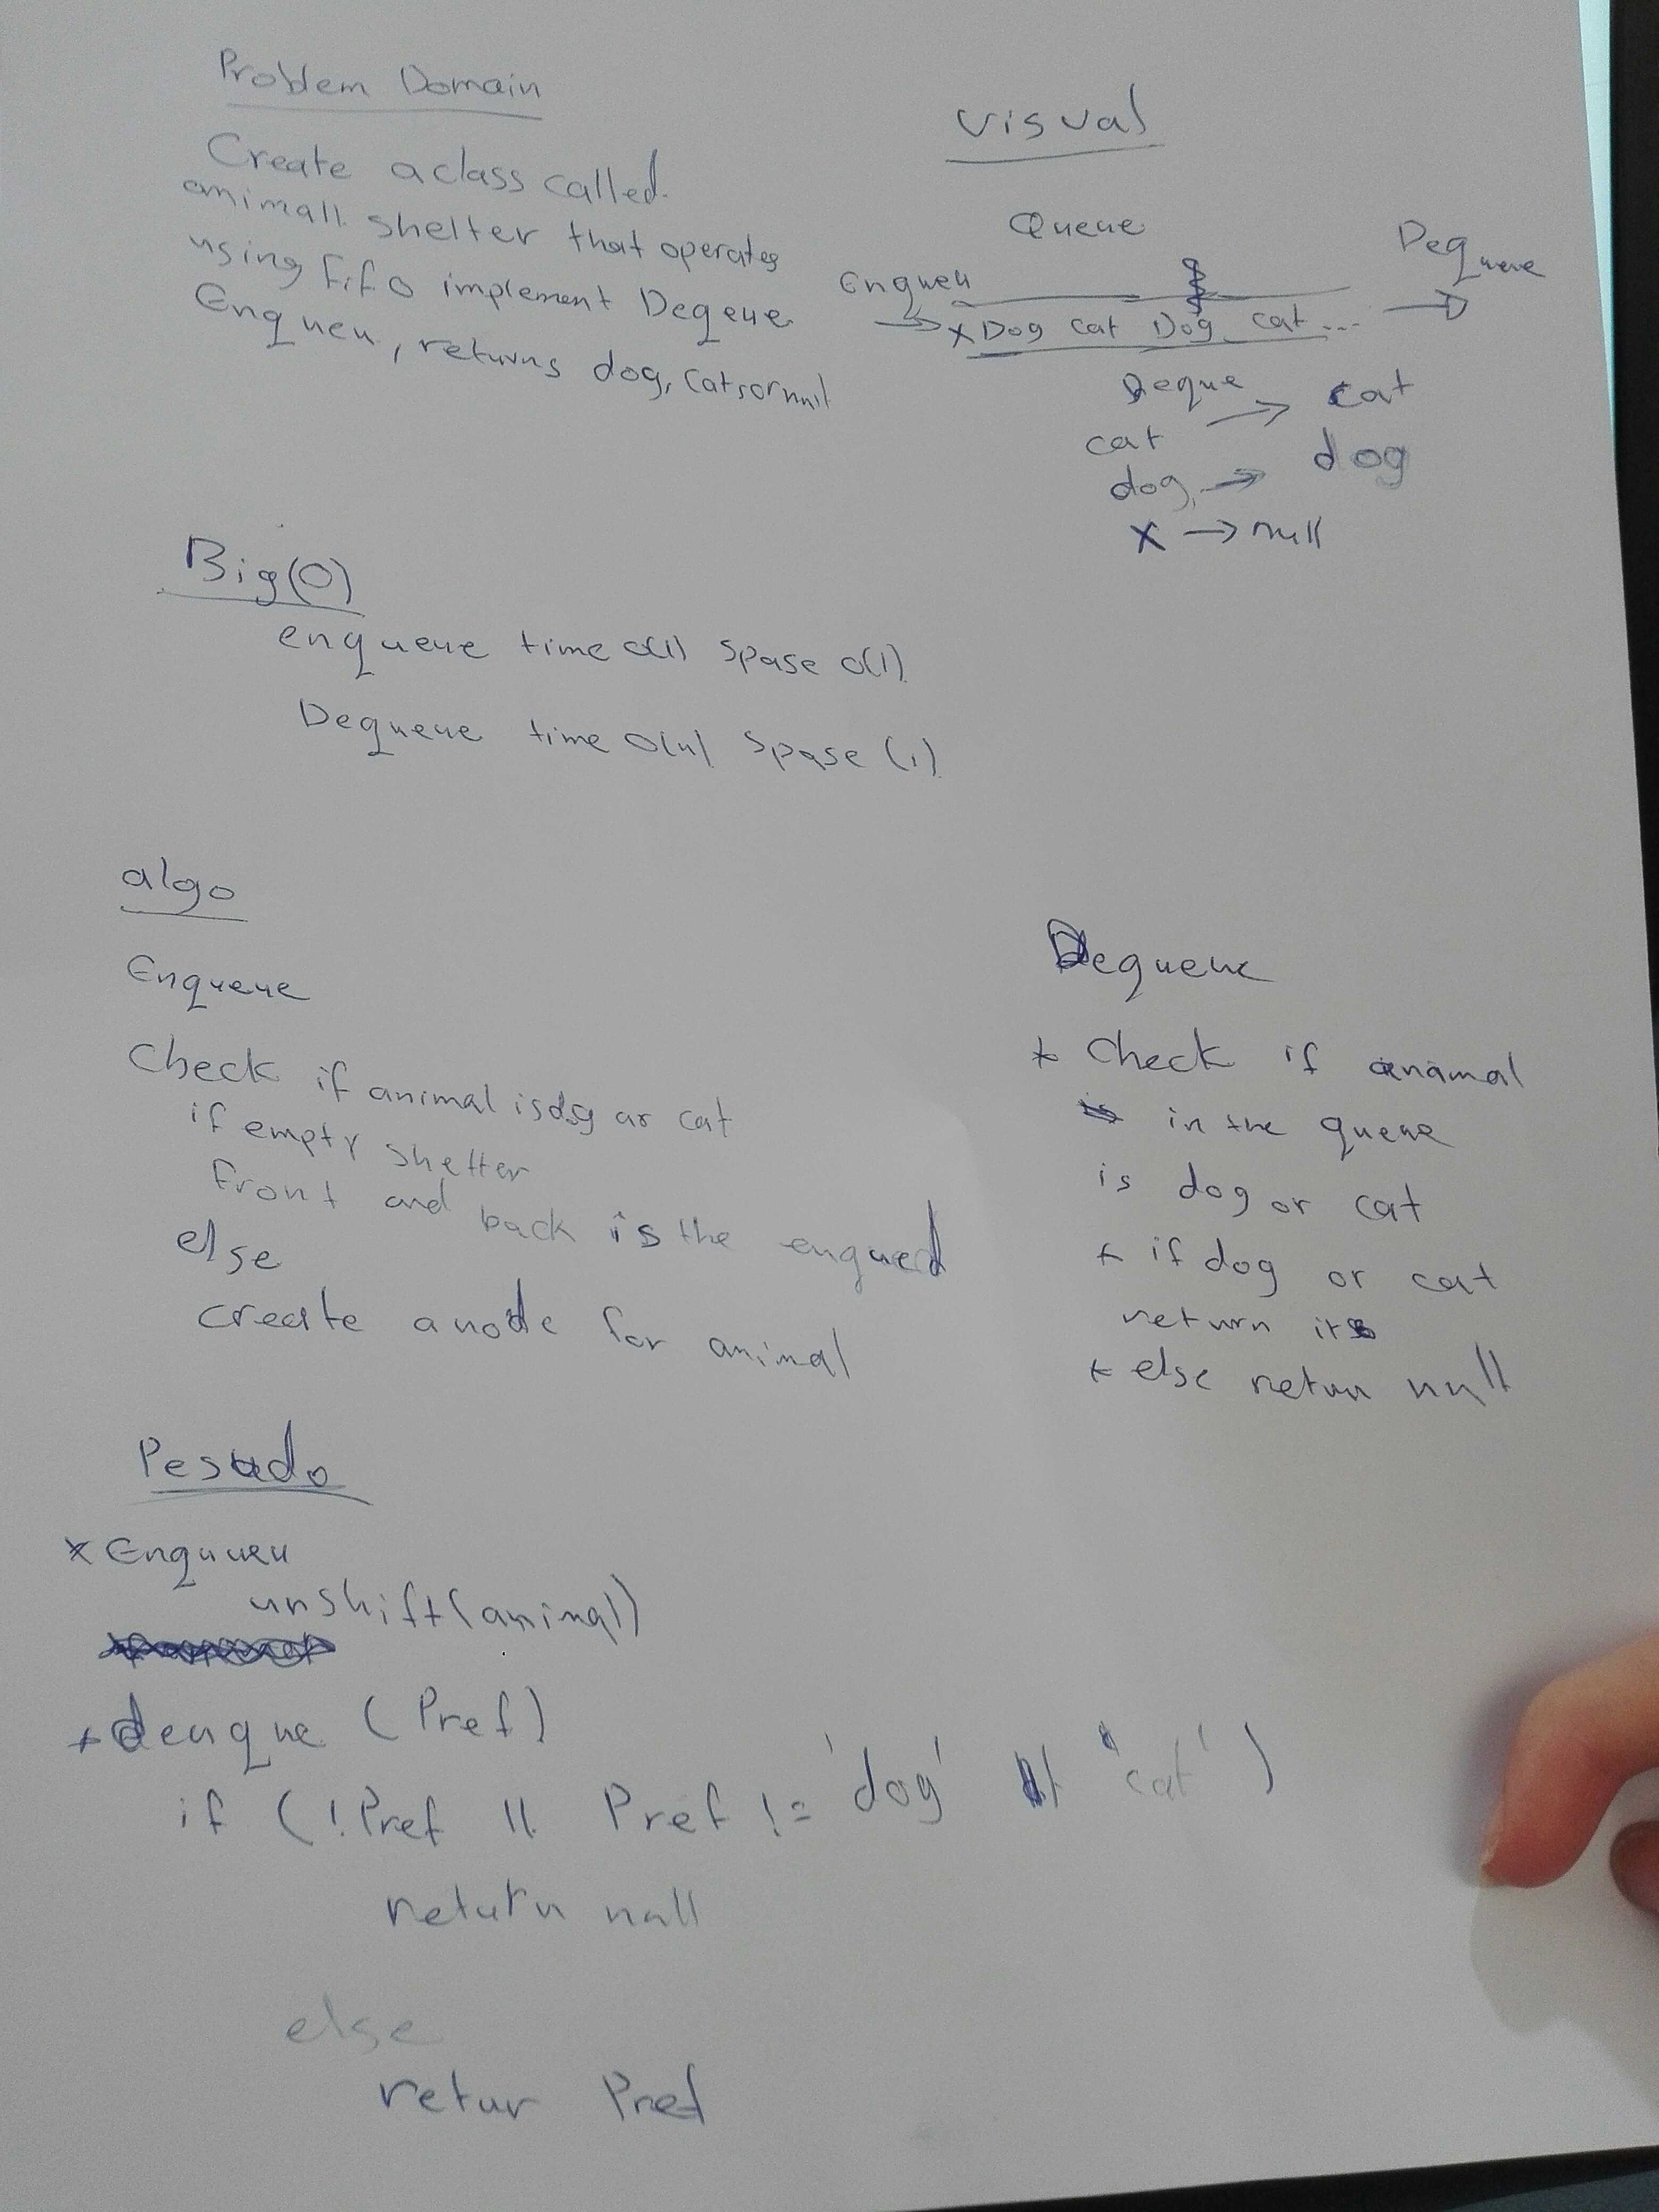 Problem Domain
Create a class called
animall shelter that operates
using Fifo implement Deqeue
Enqueu, returns dog, cats or null
Visual
Queue
Enqueu
Dequeue
→ x Dog cat Dog cat ... →
Deque
cat → cat
dog → dog
x → null
Big(O)
enqueue time O(1) Spase O(1)
Dequeue time O(n) Spase (1)
algo
Enqueue
Check if animal is dog or cat
if empty shelter
Front and back is the enqued
else
create a node for animal
Dequeue
* Check if anamal
in the queue
is dog or cat
* if dog or cat
return it
* else retun null
Pesudo
* Enqueu
unshift(animal)
* denque (Pref)
if (!Pref || Pref != 'dog' || 'cat')
return null
else
retur Pref